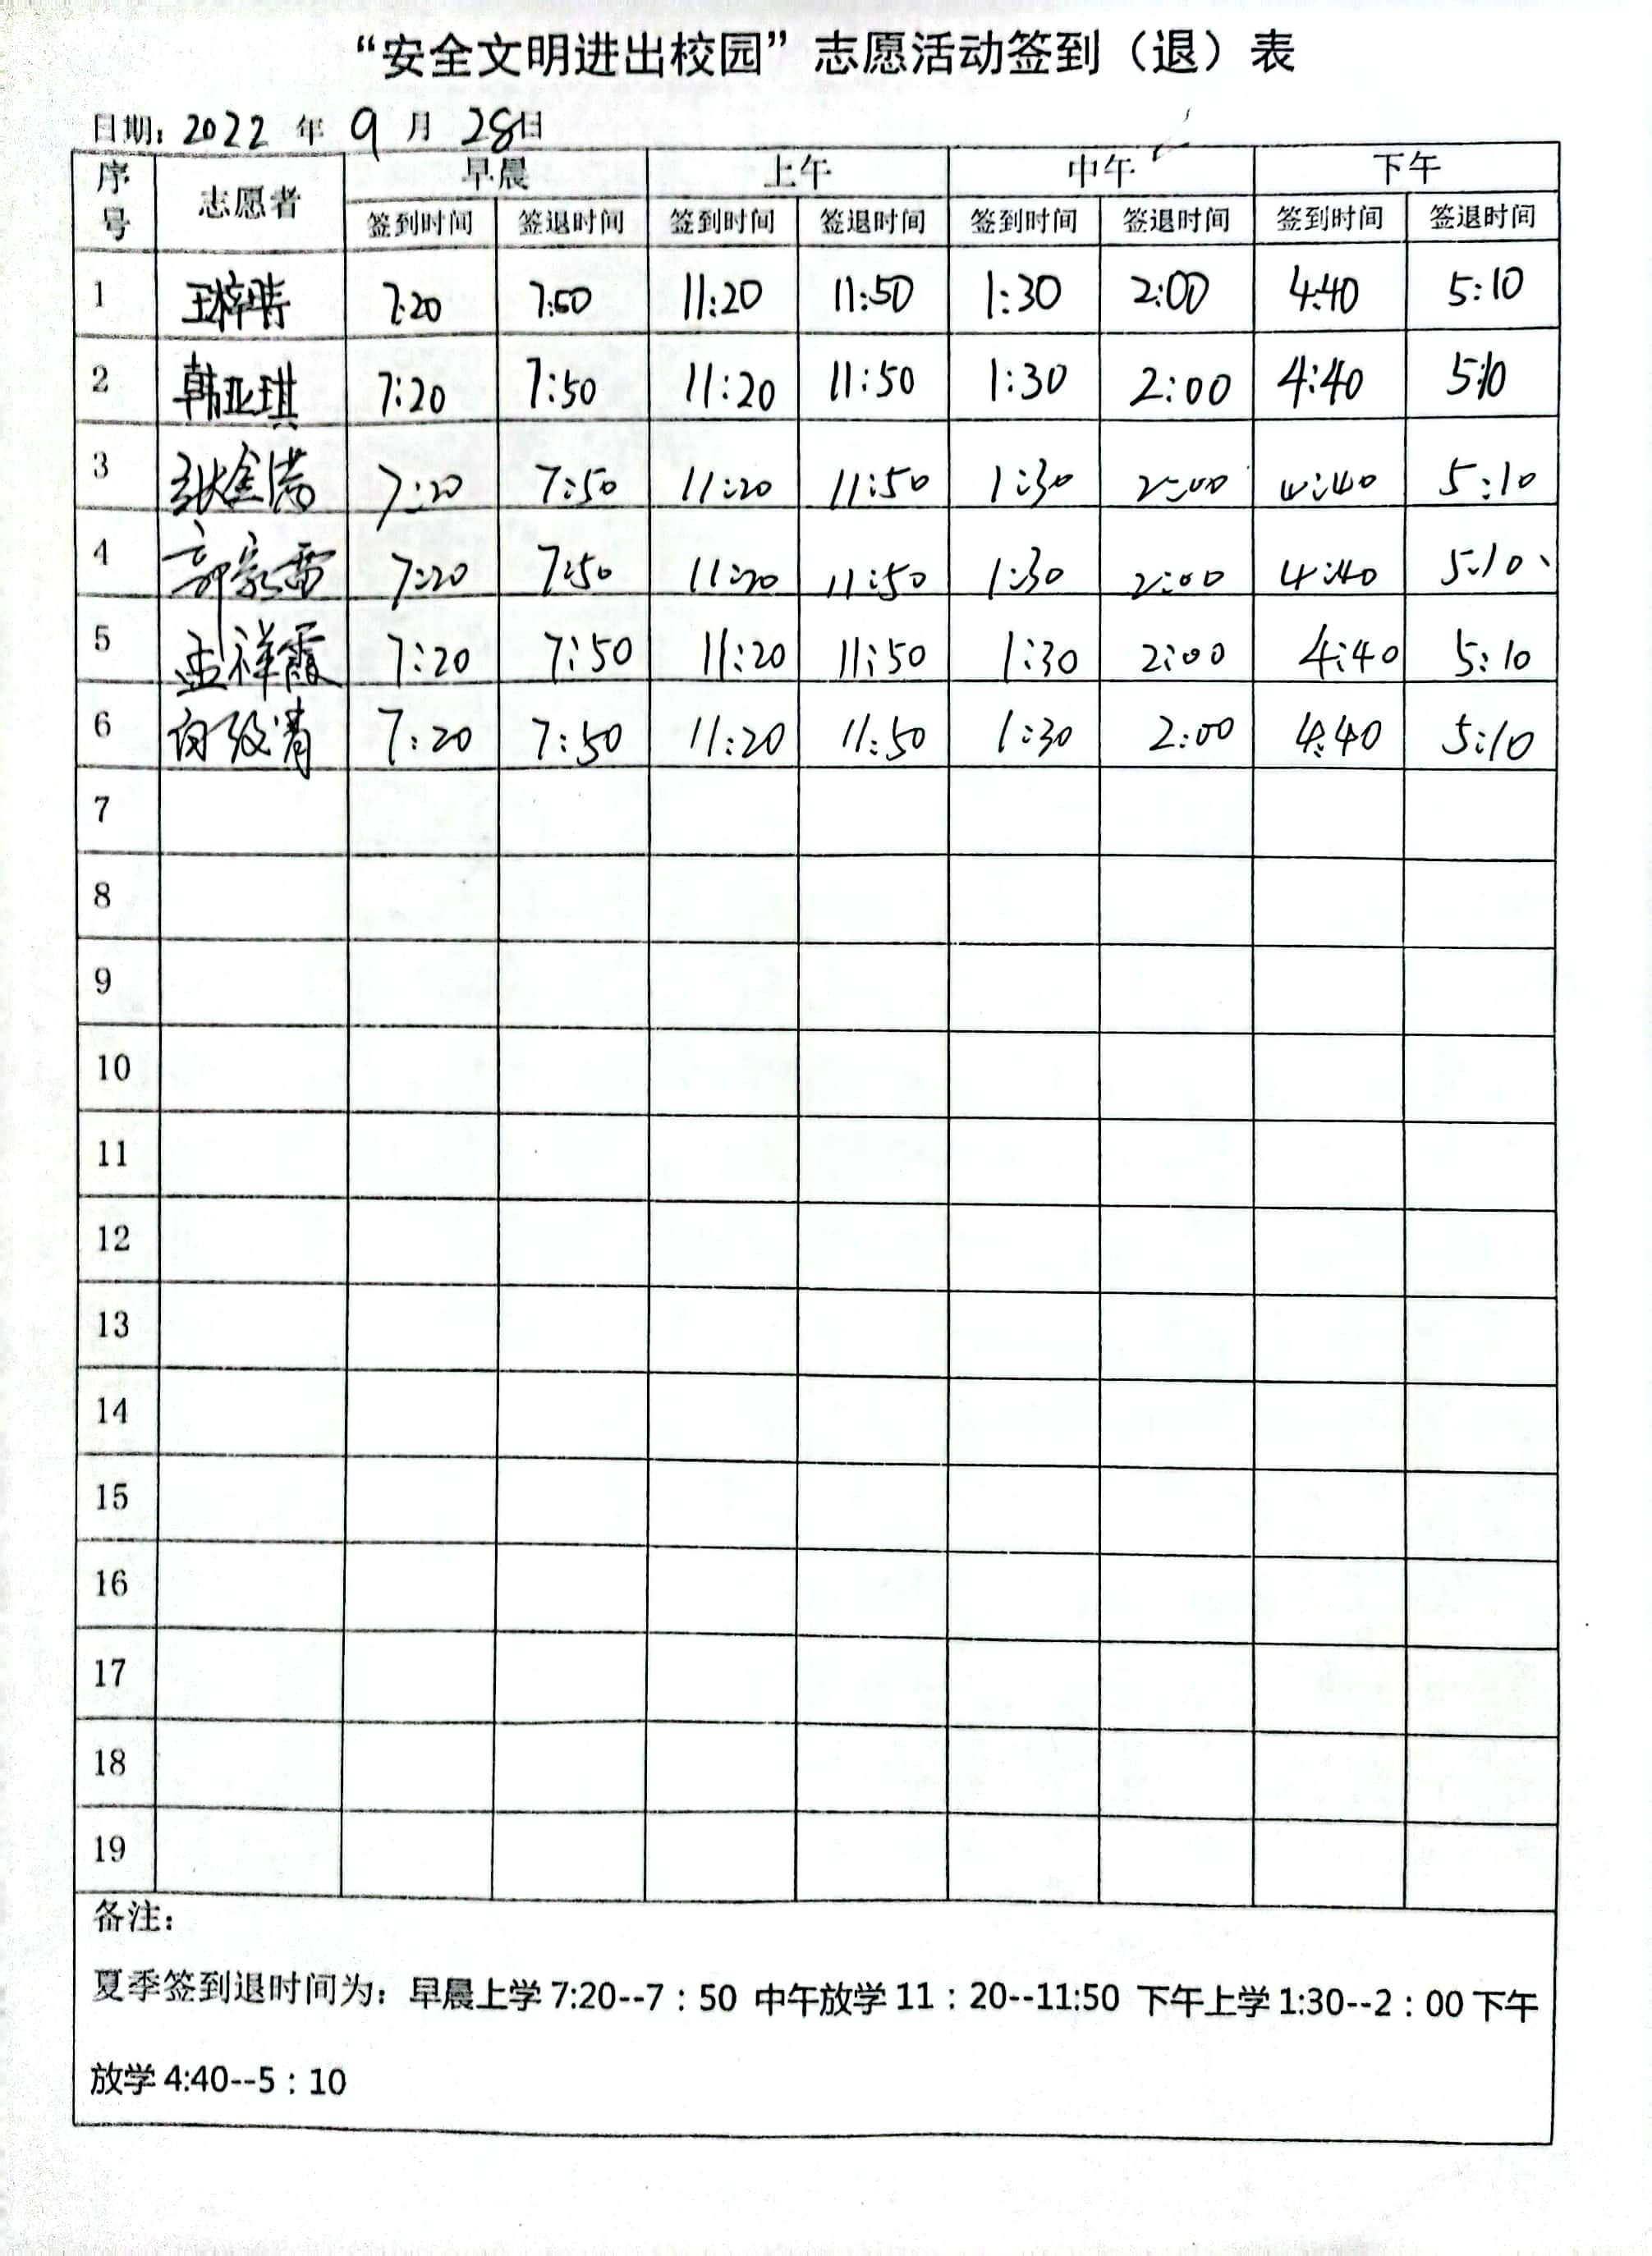 “安全文明进出校园”志愿活动签到（退）表
日期：2022 年 9 月 28日
序号 志愿者 早晨 上午 中午 下午
签到时间 签退时间 签到时间 签退时间 签到时间 签退时间 签到时间 签退时间
1 7:20 7:50 11:20 11:50 1:30 2:00 4:40 5:10
2 韩亚琪 7:20 7:50 11:20 11:50 1:30 2:00 4:40 5:10
3 7:20 7:50 11:20 11:50 1:30 2:00 4:40 5:10
4 7:20 7:50 11:20 11:50 1:30 2:00 4:40 5:10
5 孟祥霞 7:20 7:50 11:20 11:50 1:30 2:00 4:40 5:10
6 7:20 7:50 11:20 11:50 1:30 2:00 4:40 5:10
7
8
9
10
11
12
13
14
15
16
17
18
19
备注：
夏季签到退时间为：早晨上学 7:20--7：50 中午放学 11：20--11:50 下午上学 1:30--2：00 下午
放学 4:40--5：10